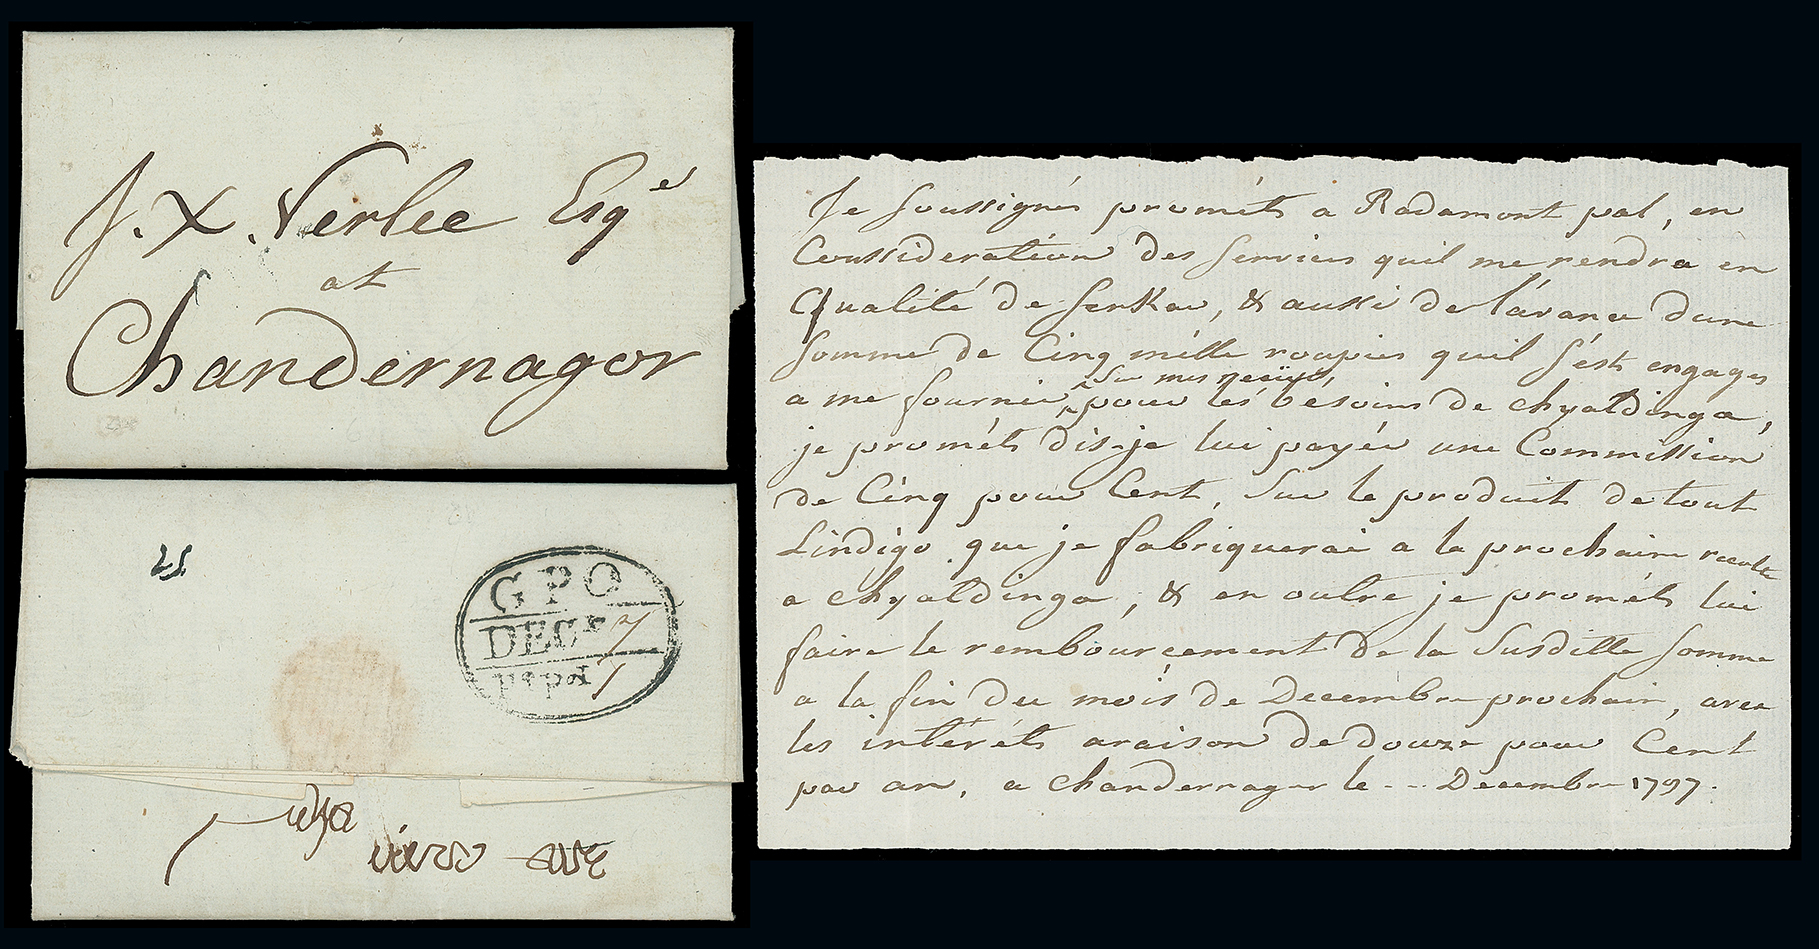 J. X. Verlee Esqe
at
Chandernagor
GPO
DECr 7
Fs pd 1
Je soussignés prométs a Radamont pal, en
Conssideration des services quil me rendra en
Qualité de Serkar, & aussi de l'avance dune
somme de Cinq mille roupies quil s'est engagés
sur mes reçus,
a me fournir, pour les besoins de Chyaldinga,
je prométs dis-je lui payér une Commission
de Cinq pour Cent, Sur le produit de tout
Lindigo que je fabriquerai a la prochaine recolte
a Chyaldinga, & en outre je prométs lui
faire le rembourcement de la Susditte somme
a la fin du mois de Decembre prochain, avec
les intéréts araison de douze pour Cent
par an, a Chandernagor le --- Decembre 1797.